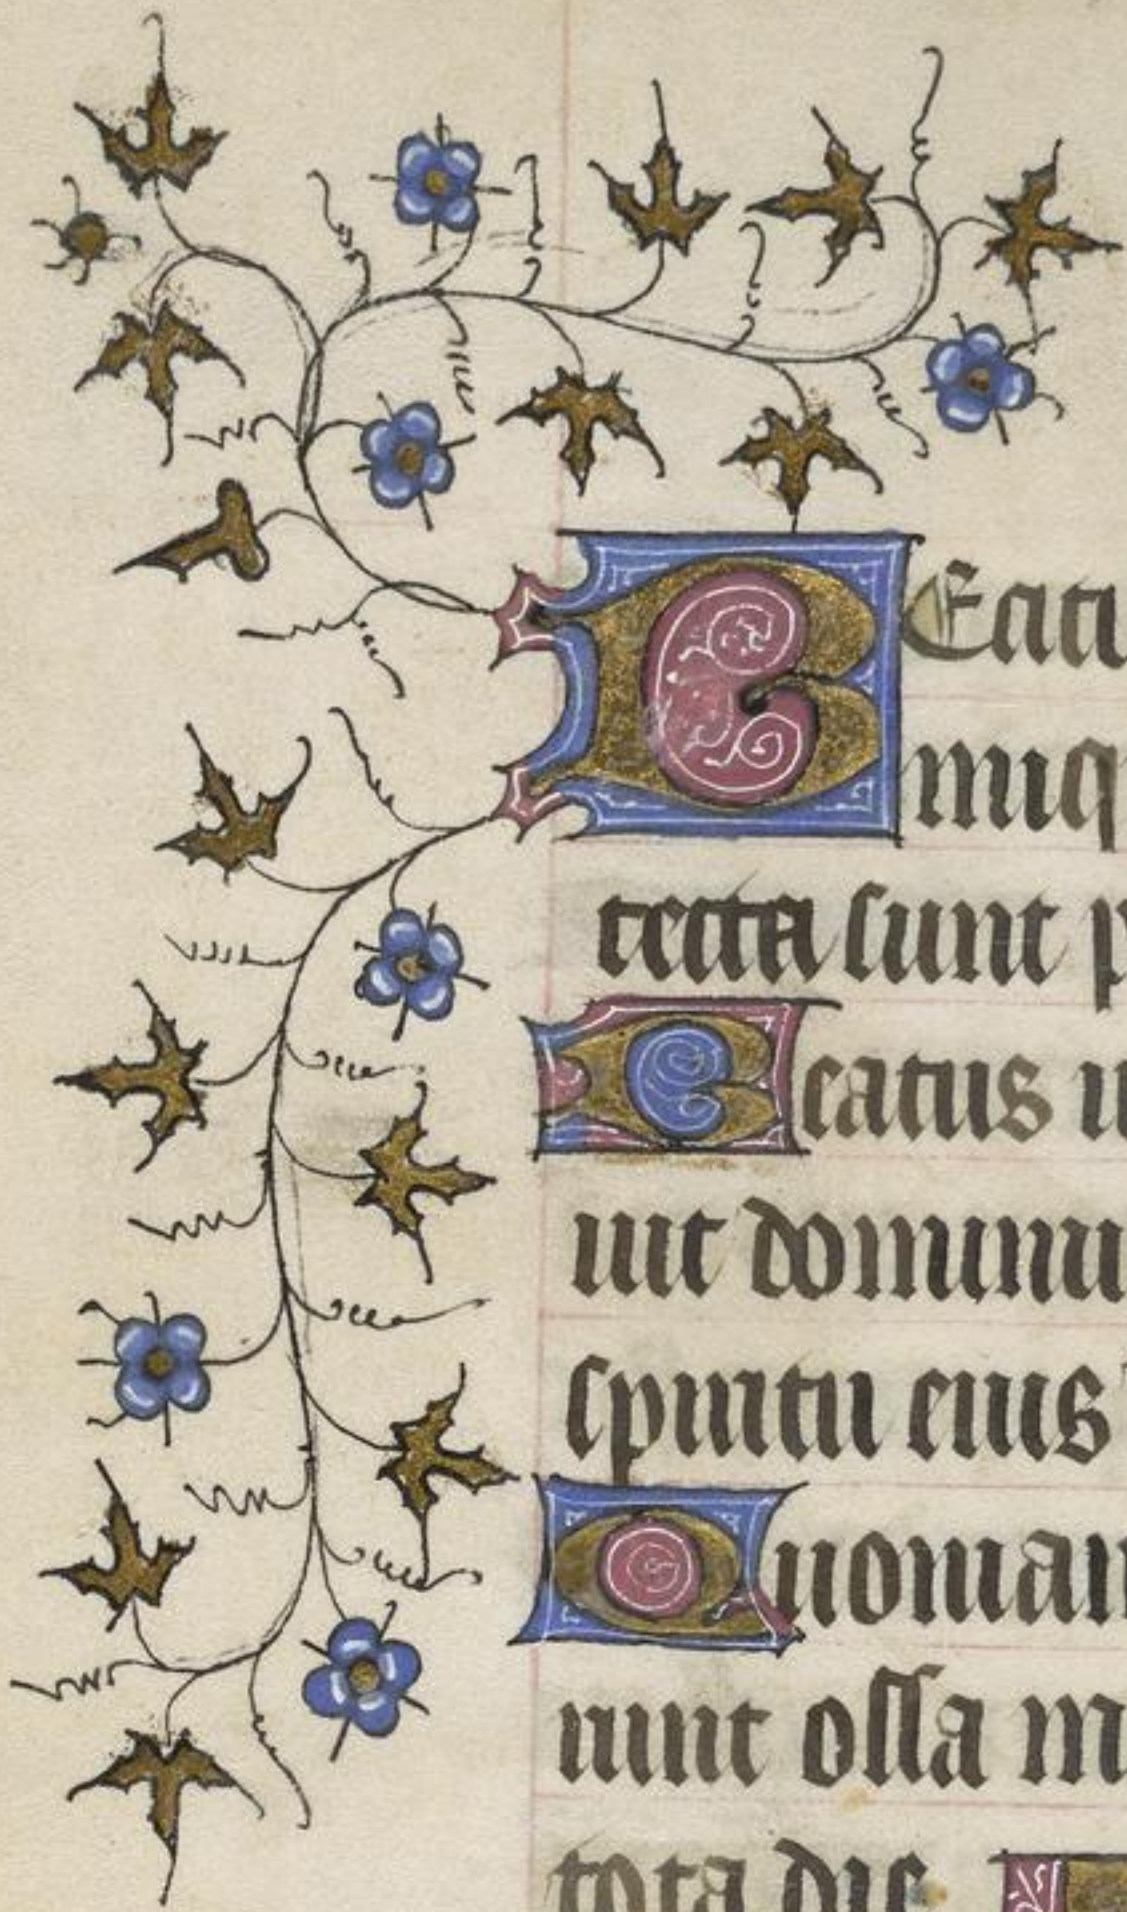 BEati
iniq
tecta sunt p
Beatus u
uit dominu
spiritu eius
Quoniam
runt ossa m
tota die